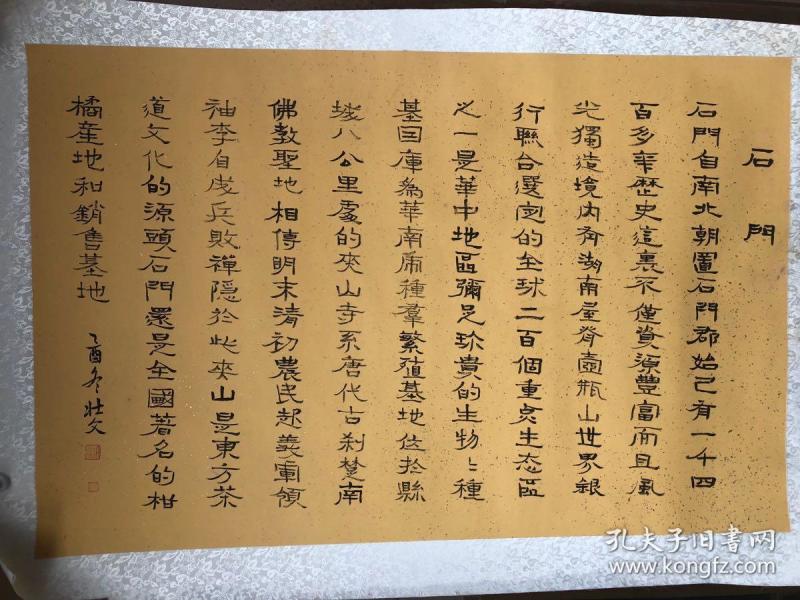 石門
石門自南北朝置石門郡始已有一千四
百多年歷史這裏不僅資源豐富而且風
光獨造境內有湖南屋脊壺瓶山世界銀
行聯合選定的全球二百個重点生态區
之一是華中地區彌足珍貴的生物物種
基因庫為華南虎種羣繁殖基地位於縣
城八公里處的夾山寺系唐代古刹楚南
佛教聖地相傳明末清初農民起義軍領
袖李自成兵敗禪隱於此夾山是東方茶
道文化的源頭石門還是全國著名的柑
橘產地和銷售基地
乙酉冬壯文
孔夫子旧书网
www.kongfz.com